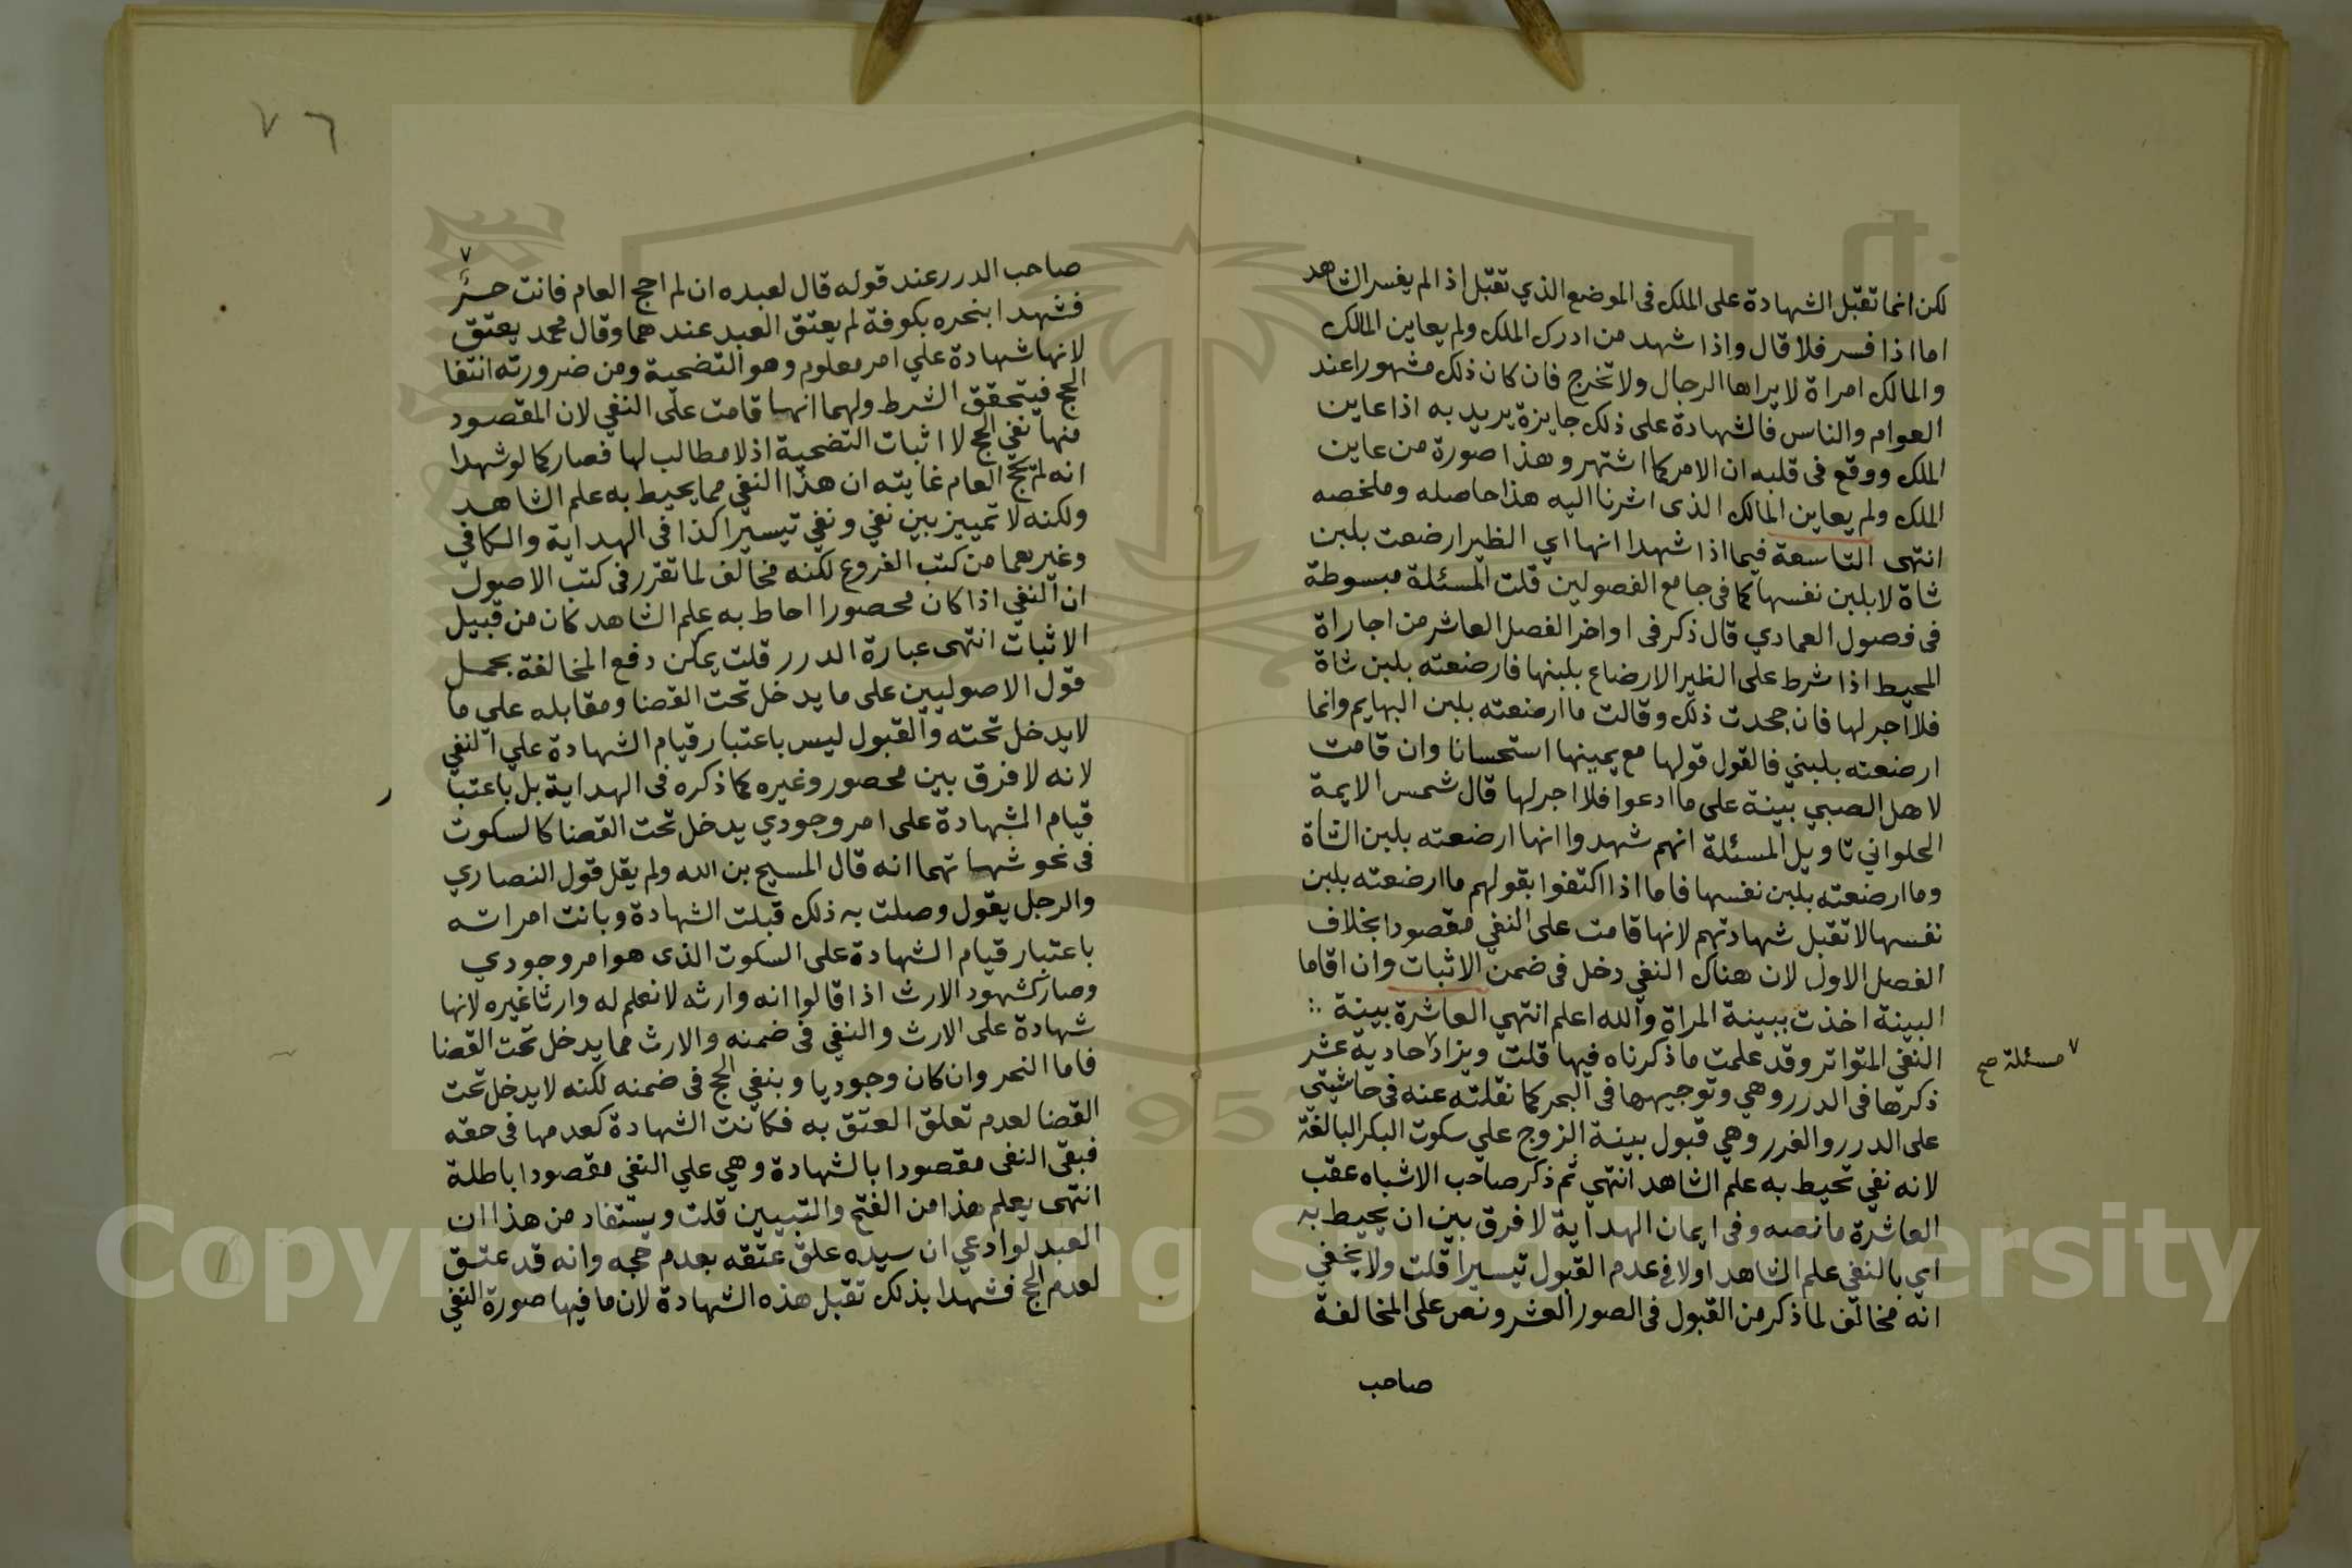 لكن انما تقبل الشهادة على الملك فى الموضع الذي تقبل اذا لم يفسر الشاهد
اما اذا فسر فلا قال واذا شهد من ادرك الملك ولم يعاين المالك
والمالك امراة لا يراها الرجال ولا تخرج فان كان ذلك مشهورا عند
العوام والناس فالشهادة على ذلك جايزة يريد به اذا عاين
الملك ووقع فى قلبه ان الامر كما اشتهر وهذا صورة من عاين
الملك ولم يعاين المالك الذى اشرنا اليه هذا حاصله وملخصه
انتهى التاسعة فيما اذا شهدا انها اي الظير ارضعت بلبن
شاة لا بلبن نفسها كما فى جامع الفصولين قلت المسئلة مبسوطة
فى فصول العمادي قال ذكر فى اواخر الفصل العاشر من اجاراة
المحيط اذا شرط على الظير الارضاع بلبنها فارضعته بلبن شاة
فلا اجر لها فان جحدت ذلك وقالت ما ارضعته بلبن البهايم وانما
ارضعته بلبني فالقول قولها مع يمينها استحسانا وان قامت
لاهل الصبي بينة على ما ادعوا فلا اجر لها قال شمس الايمة
الحلواني تاويل المسئلة انهم شهدوا انها ارضعته بلبن الشاة
وما ارضعته بلبن نفسها فاما اذا اكتفوا بقولهم ما ارضعته بلبن
نفسها لا تقبل شهادتهم لانها قامت على النفي مقصودا بخلاف
الفصل الاول لان هناك النفي دخل فى ضمن الاثبات وان اقاما
البينة اخذت ببينة المراة والله اعلم انتهي العاشرة بينة
النفي المتواتر وقد علمت ما ذكرناه فيها قلت ويزاد٧ حادية عشر
٧ مسئلة صح
ذكرتها فى الدرر وهي وتوجيهها فى البحر كما نقلته عنه فى حاشيتي
على الدرر والغرر وهي قبول بينة الزوج علي سكوت البكر البالغة
لانه نفي تحيط به علم الشاهد انتهي ثم ذكر صاحب الاشباه عقب
العاشرة ما نصه وفى ايمان الهداية لا فرق بين ان يحيط به
اي بالنفي علم الشاهد اولا فى عدم القبول تيسيرا قلت ولا يخفي
انه مخالف لما ذكر من القبول فى الصور العشر ونص على المخالفة
صاحب
٧٦
صاحب الدرر عند قوله قال لعبده ان لم احج العام فانت حر
فشهدا بنحره بكوفة لم يعتق العبد عندهما وقال محمد يعتق
لانها شهادة علي امر معلوم وهو التضحية ومن ضرورته انتفا
الحج فيتحقق الشرط ولهما انها قامت على النفي لان المقصود
منها نفي الحج لا اثبات التضحية اذ لا مطالب لها فصار كما لو شهدا
انه لم يحج العام غايته ان هذا النفي مما يحيط به علم الشاهد
ولكنه لا تمييز بين نفي ونفي تيسيرا كذا فى الهداية والكافي
وغيرهما من كتب الفروع لكنه مخالف لما تقرر فى كتب الاصول
ان النفي اذا كان محصورا احاط به علم الشاهد كان من قبيل
الاثبات انتهى عبارة الدرر قلت يمكن دفع المخالفة بحمل
قول الاصوليين على ما يدخل تحت القضا ومقابله علي ما
لا يدخل تحته والقبول ليس باعتبار قيام الشهادة علي النفي
لانه لا فرق بين محصور وغيره كما ذكره فى الهداية بل باعتبا
ر
قيام الشهادة على امر وجودي يدخل تحت القضا كالسكوت
فى نحو شهادتهما انه قال المسيح بن الله ولم يقل قول النصاري
والرجل يقول وصلت به ذلك قبلت الشهادة وبانت امراته
باعتبار قيام الشهادة على السكوت الذى هو امر وجودي
وصار كشهود الارث اذا قالوا انه وارثه لا نعلم له وارثا غيره لانها
شهادة على الارث والنفي فى ضمنه والارث مما يدخل تحت القضا
فاما النحر وان كان وجوديا وبنفي الحج فى ضمنه لكنه لا يدخل تحت
القضا لعدم تعلق العتق به فكانت الشهادة كعدمها فى حقه
فبقى النفى مقصودا بالشهادة وهي علي النفي مقصودا باطلة
انتهى يعلم هذا من الفتح والتبيين قلت ويستفاد من هذا ان
العبد لو ادعي ان سيده علق عتقه بعدم حجه وانه قد عتق
لعدم الحج فشهدا بذلك تقبل هذه الشهادة لان ما فيها صورة النفي
Copyright © King Saud University